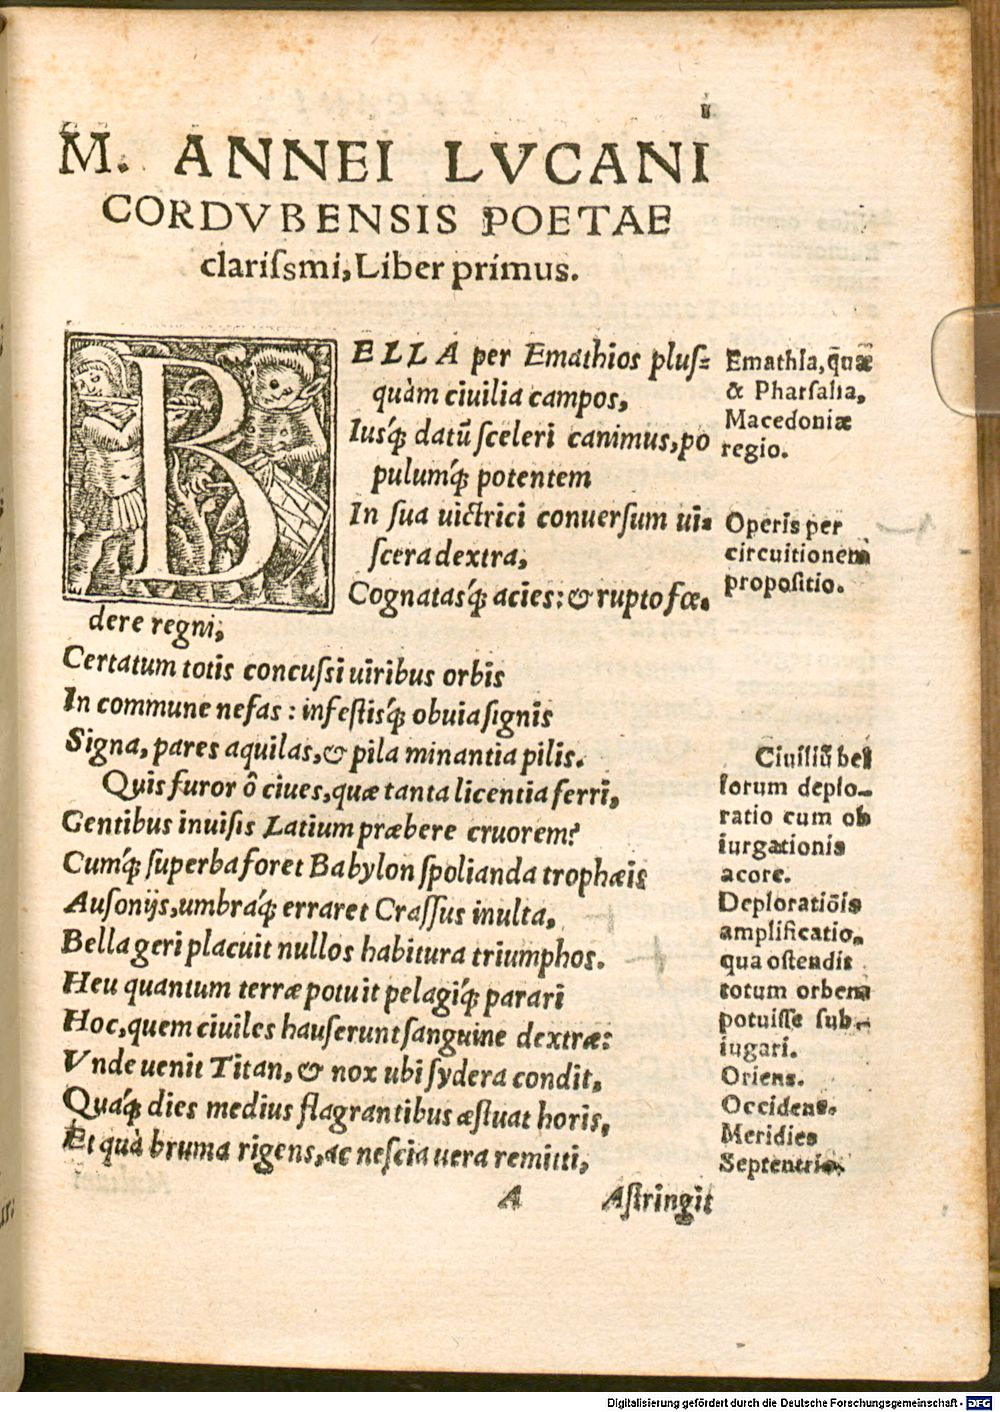 i
M. ANNEI LVCANI
CORDVBENSIS POETAE
clariſsmi, Liber primus.
BELLA per Emathios pluſ=
quàm ciuilia campos,
Iusq́; datū ſceleri canimus, po
pulumq́; potentem
In ſua uictrici conuerſum ui=
ſcera dextra,
Cognatasq́; acies: & rupto fœ.
dere regni,
Certatum totis concuſſi uiribus orbis
In commune nefas: infeſtisq́; obuia ſignis
Signa, pares aquilas, & pila minantia pilis.
Quis furor ô ciues, quæ tanta licentia ferri,
Gentibus inuiſis Latium præbere cruorem?
Cumq́; ſuperba foret Babylon ſpolianda trophæis
Auſonijs, umbráq; erraret Craſſus inulta,
Bella geri placuit nullos habitura triumphos.
Heu quantum terræ potuit pelagiq́; parari
Hoc, quem ciuiles hauſerunt ſanguine dextræ:
Vnde uenit Titan, & nox ubi ſydera condit,
Quáq; dies medius flagrantibus æſtuat horis,
Et quà bruma rigens, ac neſcia uera remitti,
A Aſtringit
Emathia, q̄uæ
& Pharſalia,
Macedoniæ
regio.
Operis per
circuitionem
propoſitio.
Ciuiliū bel
lorum deplo-
ratio cum ob
iurgationis
acore.
Deploratiōis
amplificatio,
qua oſtendit
totum orbem
potuiſſe ſub-
iugari.
Oriens.
Occidens.
Meridies
Septentrio.
Digitalisierung gefördert durch die Deutsche Forschungsgemeinschaft - DFG